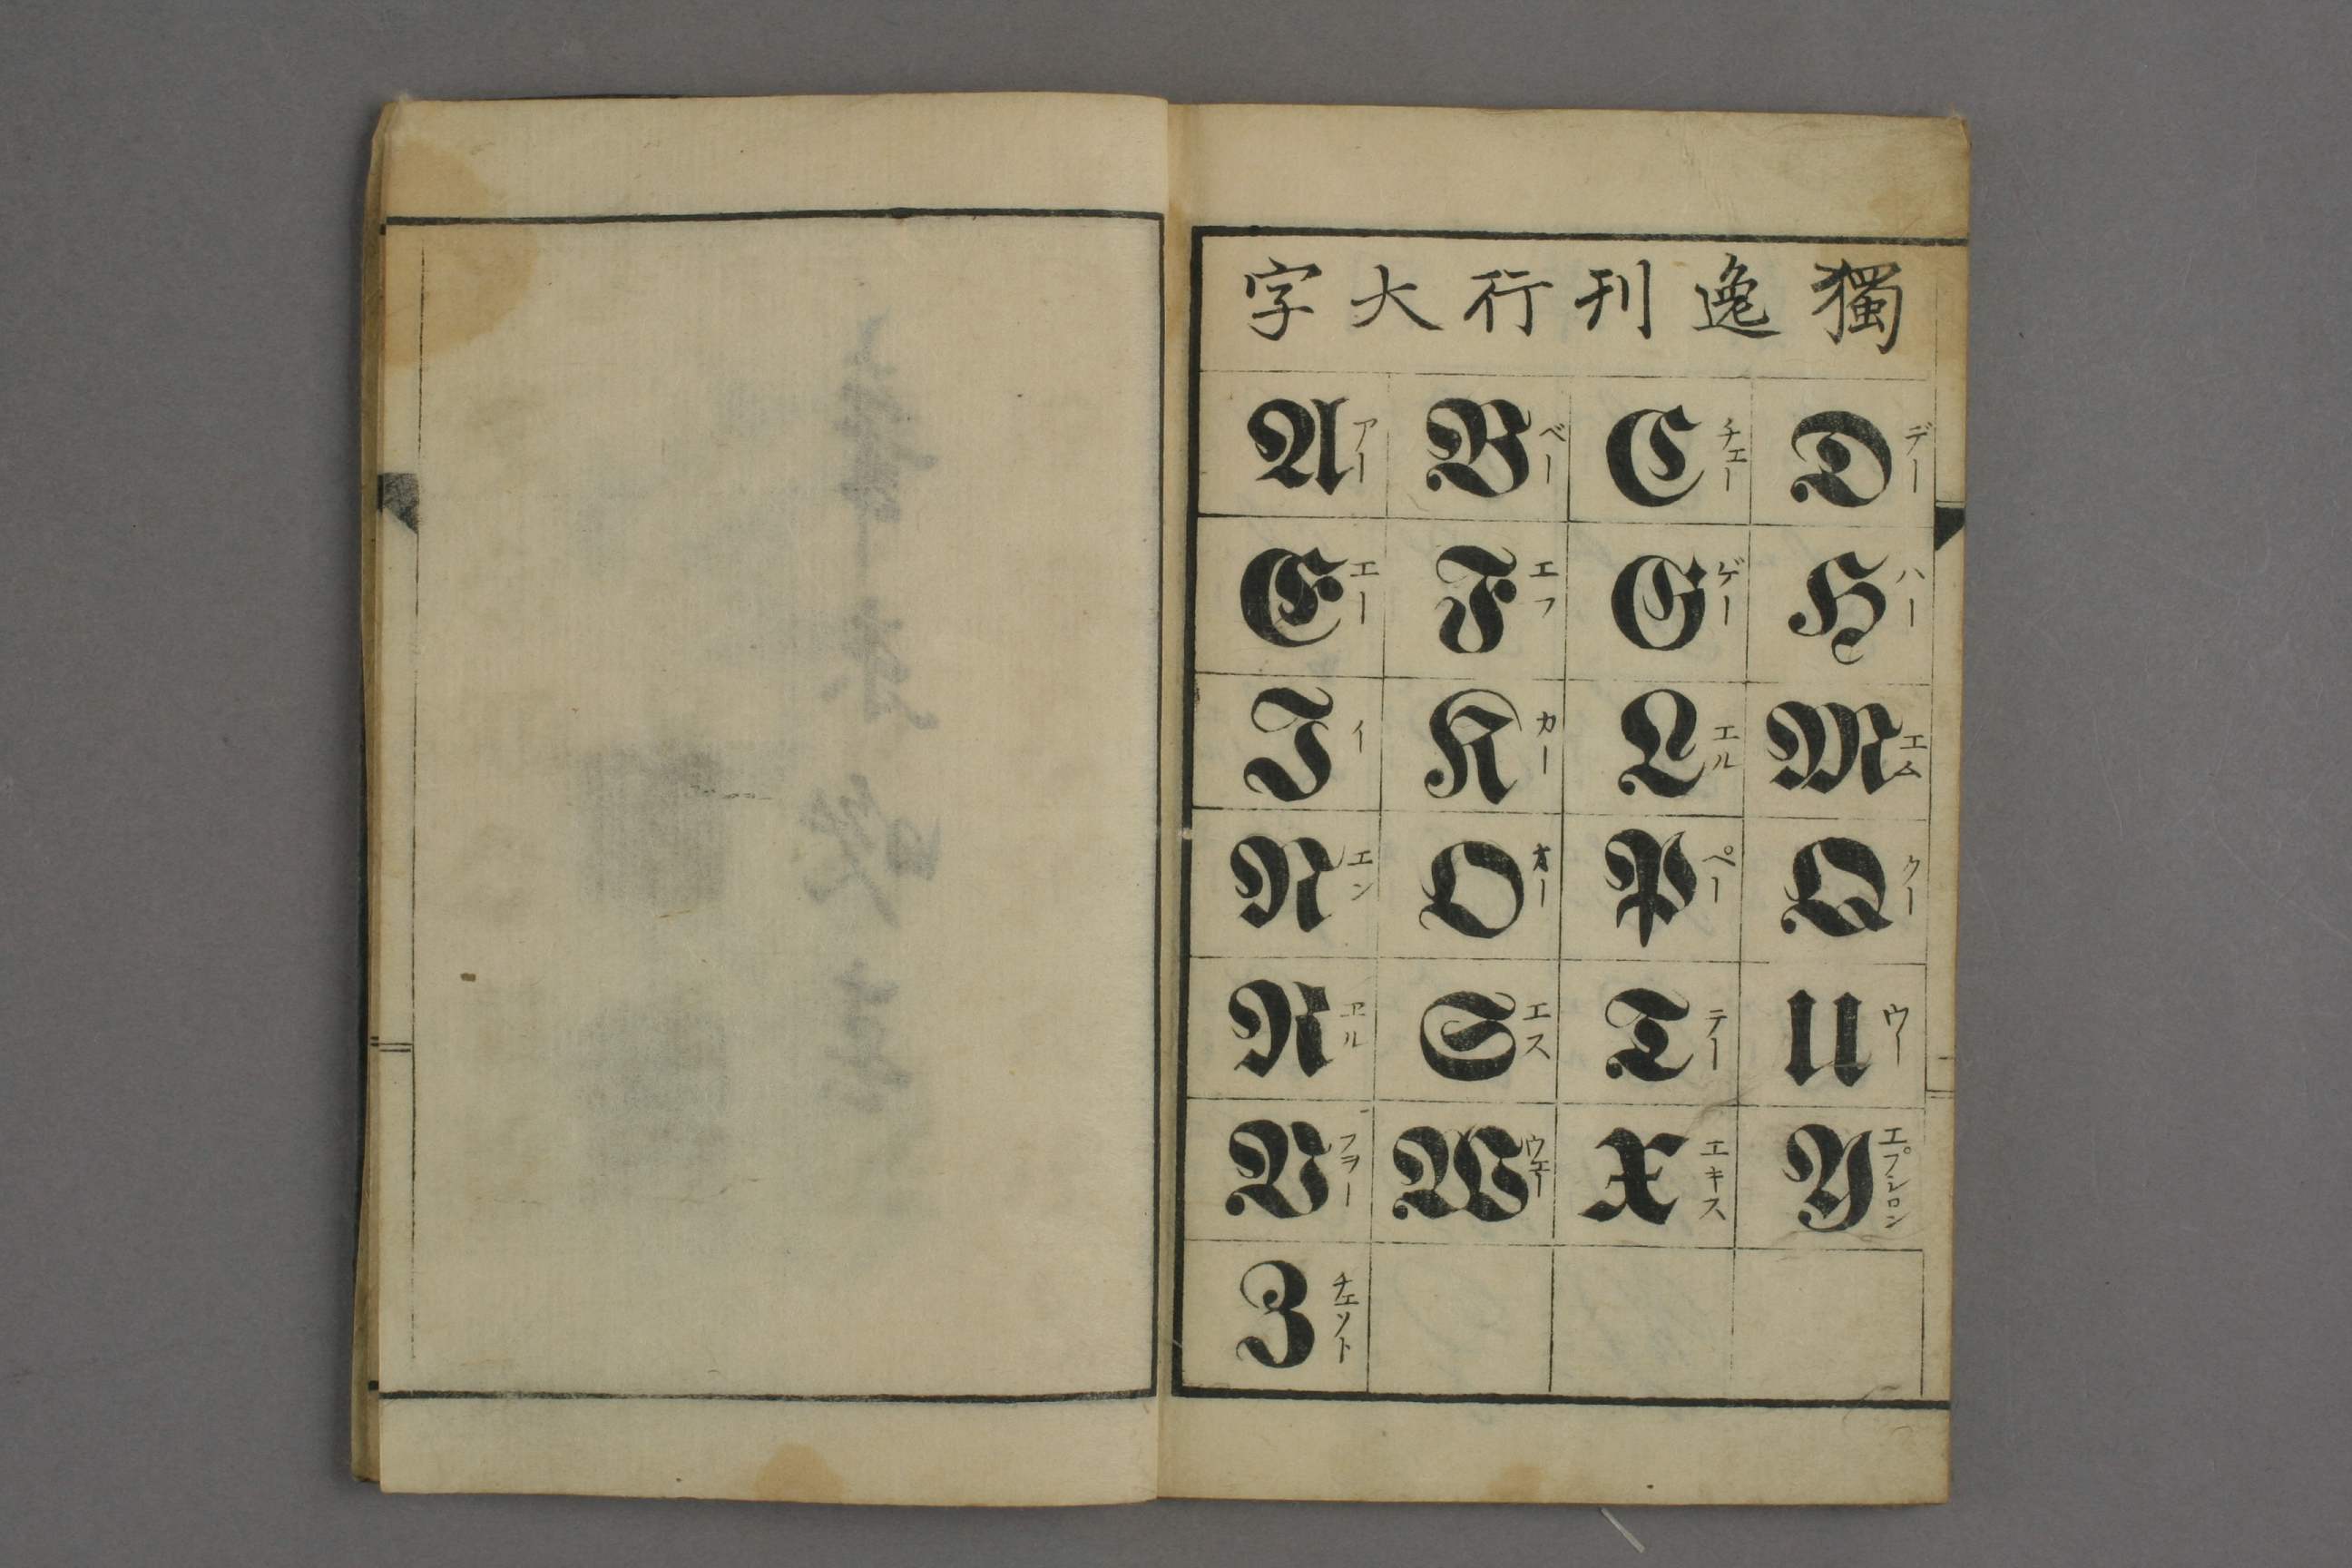 獨逸刊行大字
A アー B ベー C チエー D デー
E エー F エフ G ゲー H ハー
I イ K カー L エル M エム
N エン O オー P ペー Q クー
R ヱル S エス T テー U ウー
V フヲー W ウエー X エキス Y エプシロン
Z チエツト